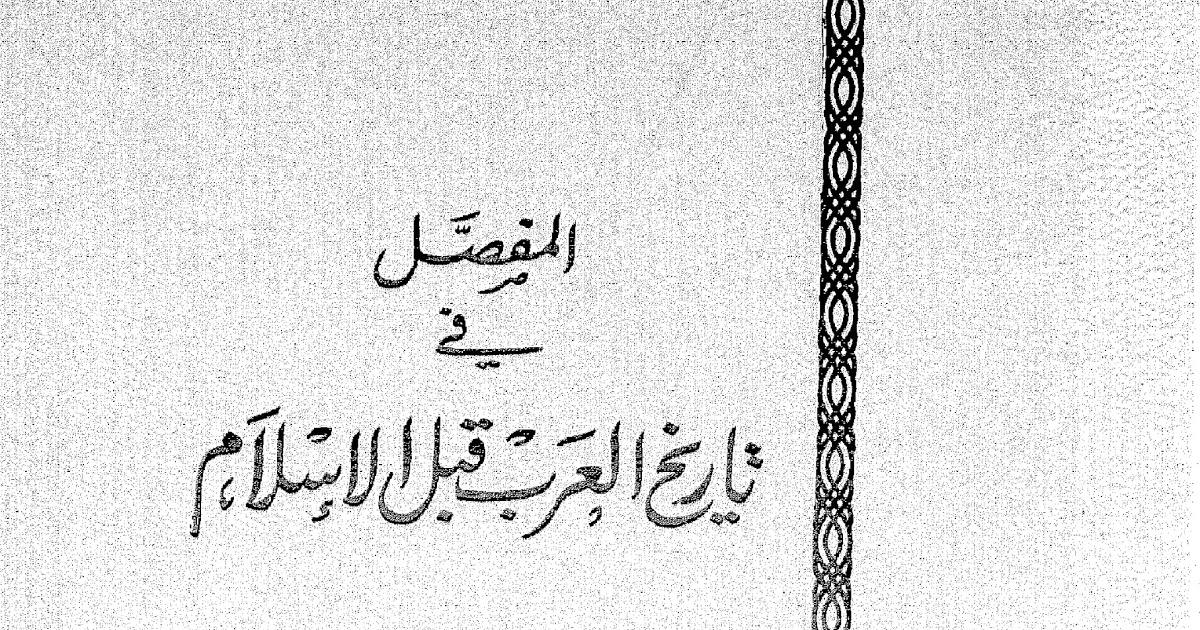 المفصَّل
في
تاريخ العَرَبْ قبل الإسْلاَم